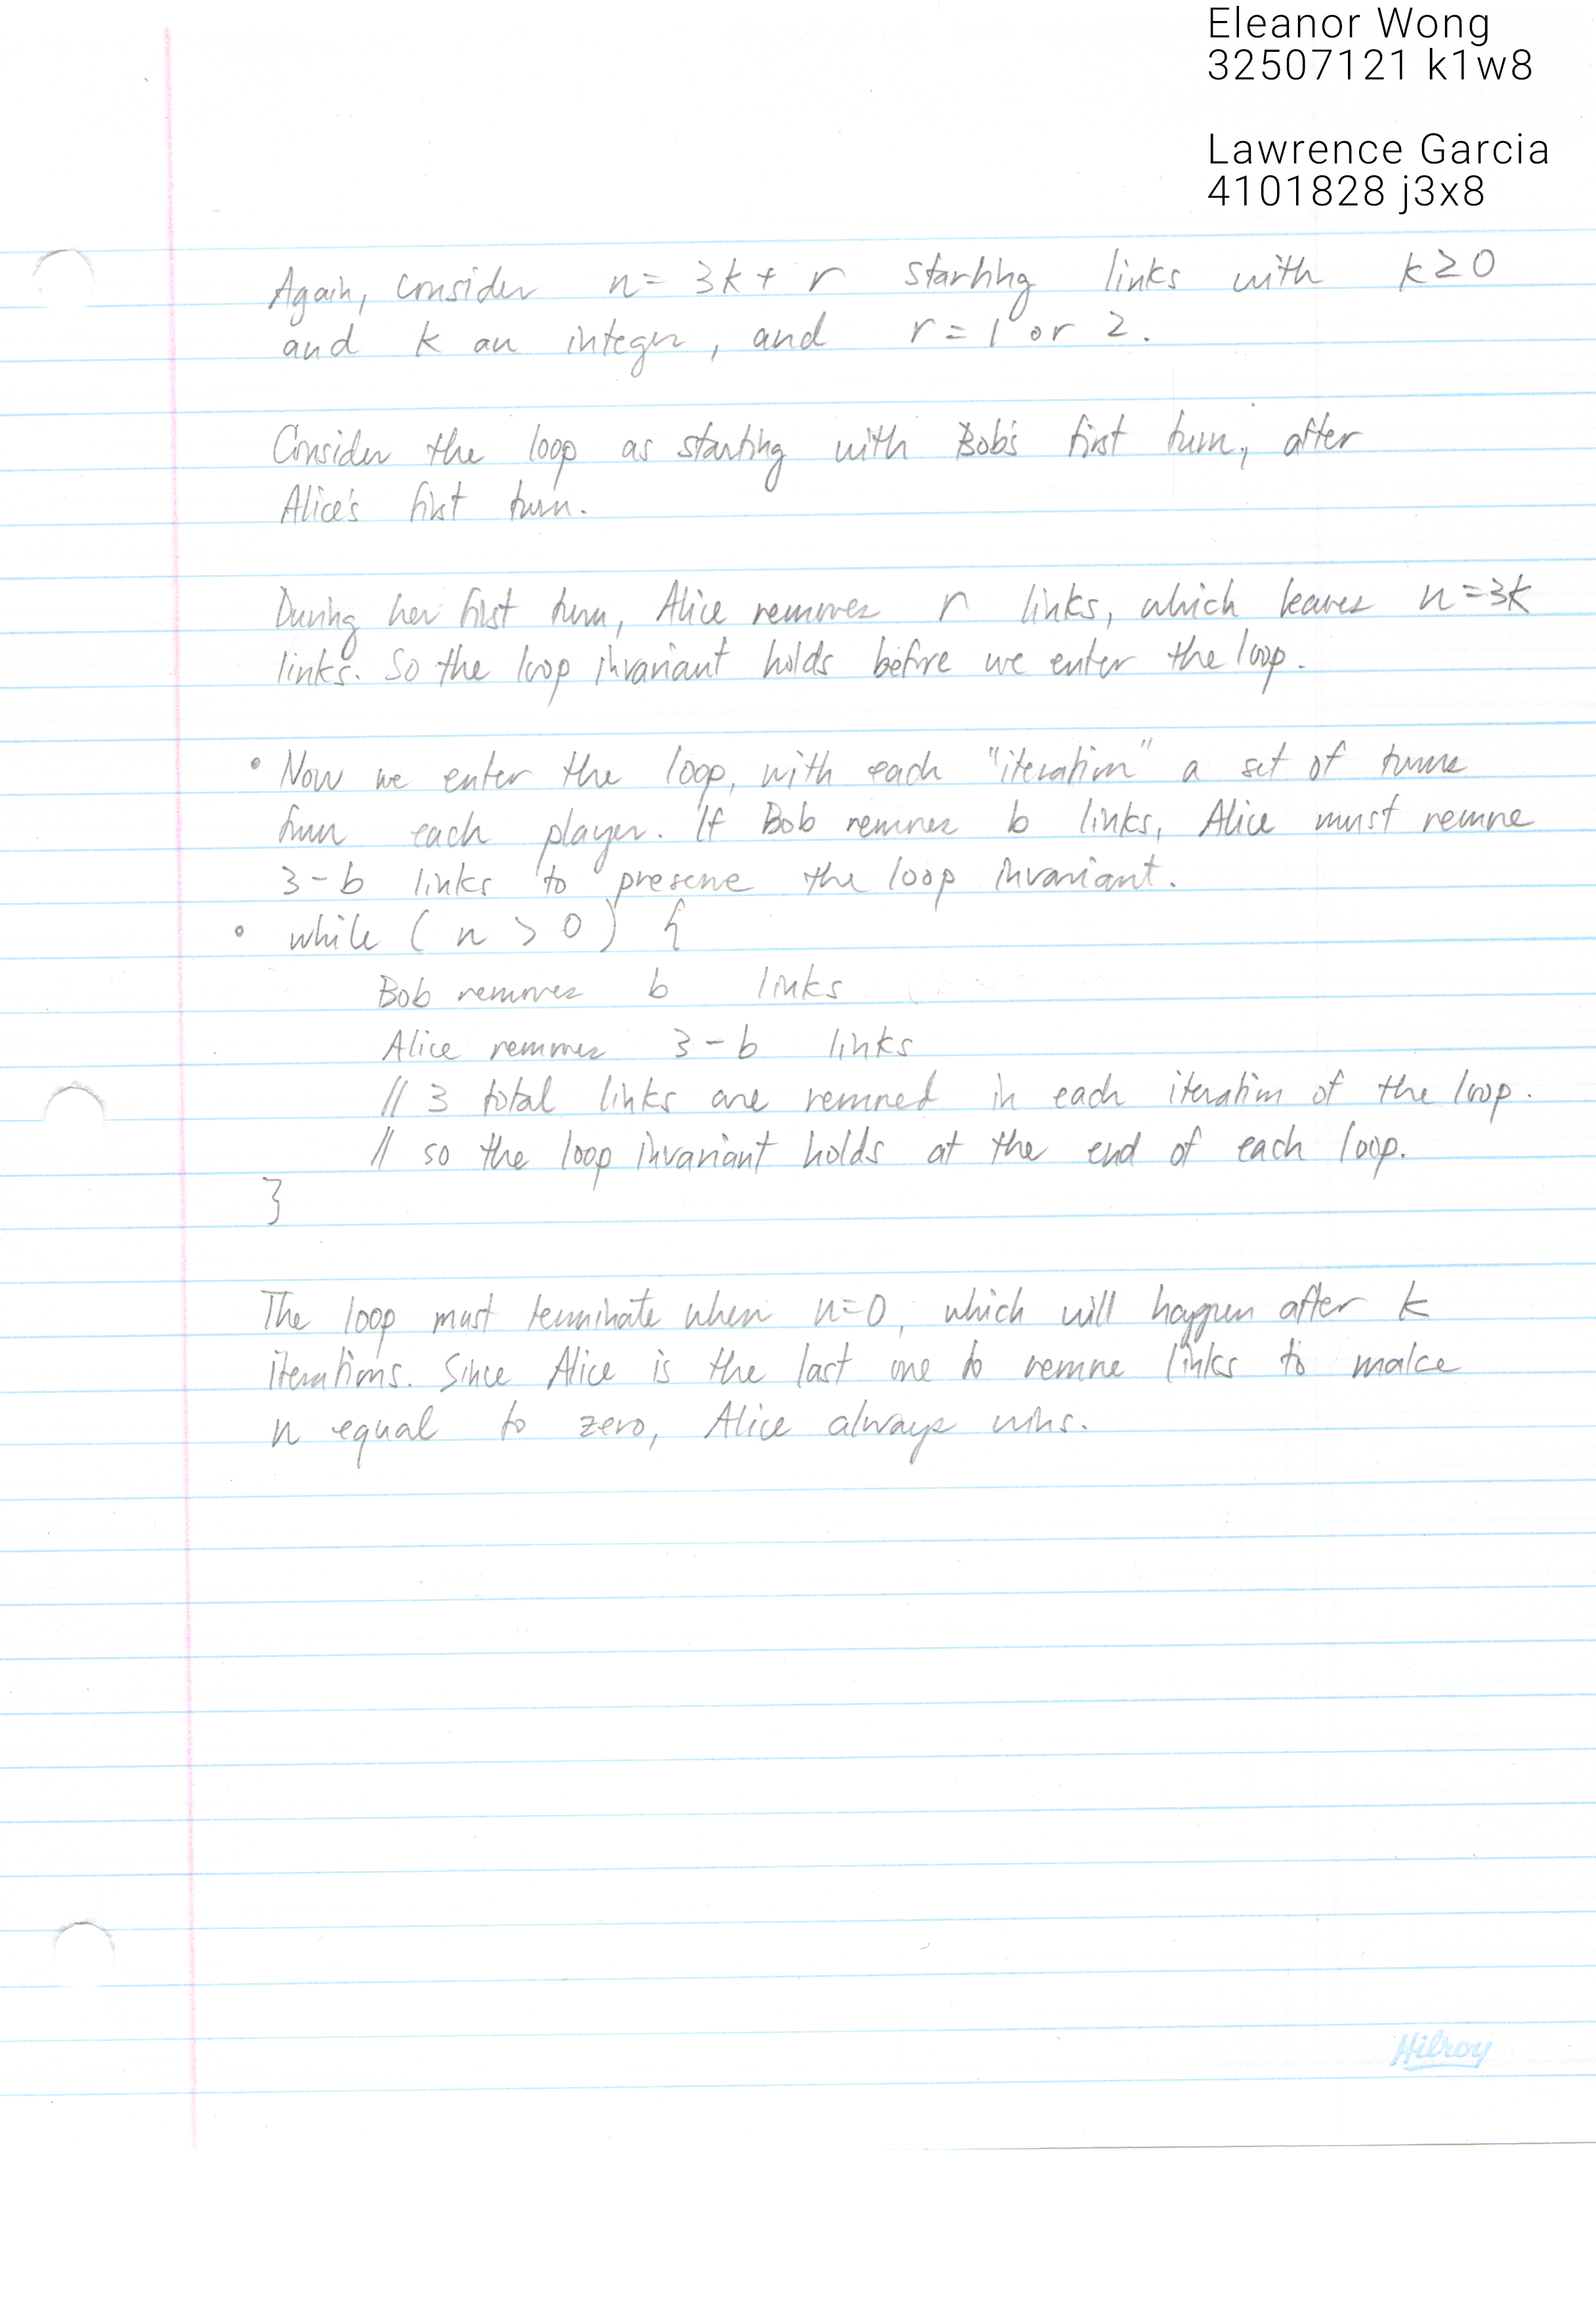 Eleanor Wong
32507121 k1w8
Lawrence Garcia
4101828 j3x8
Again, consider n = 3k + r starting links with k ≥ 0
and k an integer, and r = 1 or 2.
Consider the loop as starting with Bob's first turn, after
Alice's first turn.
During her first turn, Alice removes r links, which leaves n = 3k
links. So the loop invariant holds before we enter the loop.
• Now we enter the loop, with each "iteration" a set of turns
from each player. If Bob removes b links, Alice must remove
3-b links to preserve the loop invariant.
• while ( n > 0 ) {
Bob removes b links
Alice removes 3-b links
// 3 total links are removed in each iteration of the loop.
// so the loop invariant holds at the end of each loop.
}
The loop must terminate when n=0, which will happen after k
iterations. Since Alice is the last one to remove links to make
n equal to zero, Alice always wins.
Hilroy